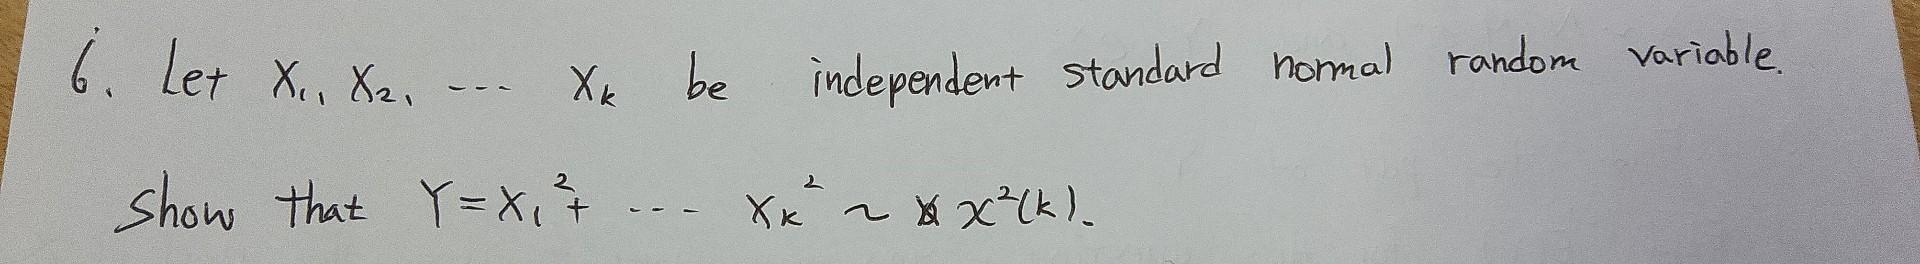 6. Let X₁, X₂, --- Xₖ be independent standard normal random variable.
show that Y=X₁²+ --- Xₖ² ~ x²(k).